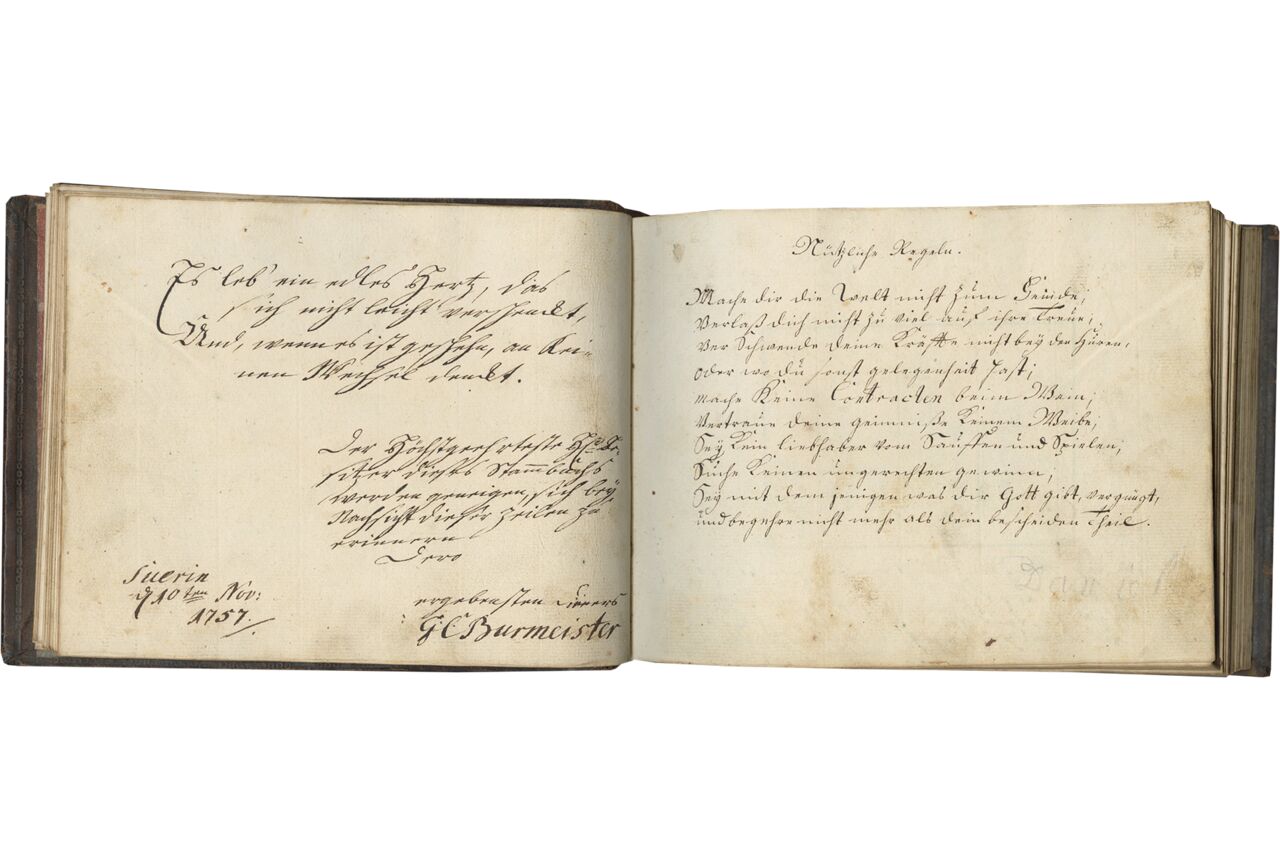 Es leb' ein edles Hertz, das
sich nicht leicht verschenckt,
Und, wenn es ist geschehn, an kei-
nen Wechsel denckt.
Der Höchstgeehrteste H. Be-
sitzer dieses Stammbuchs
werden geneigen, sich bey
Nachsicht dieser Zeilen zu
erinnern
Dero
ergebensten Dieners
GC Burmeister
Suerin
d 10ten Nov:
1757.
Nützliche Regeln.
Mache dir die Welt nicht zum Feinde,
Verlaß dich nicht zu viel auf ihre Treue;
Ver Schwende deine Kräffte nicht bey den Huren,
oder wo du sonst gelegenheit hast;
mache Keine Contracten beim Wein;
Vertraue deine geimniße Keinem Weibe;
Sey Kein liebhaber vom Sauffen und Spielen;
Suche Keinen ungerechten gewinn;
Sey mit dem jenigen was dir Gott gibt, vergnügt,
und begehre nicht mehr als dein bescheiden Theil.